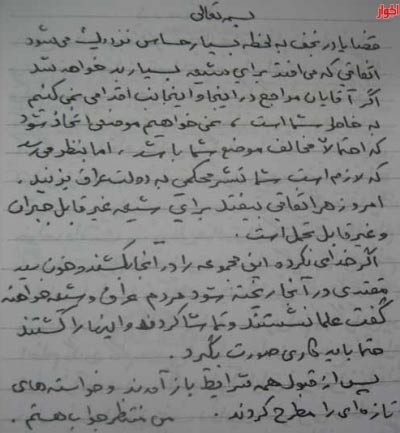 اخبار
بسمه تعالی
قضایا در نجف به لحظه بسیار حساس نزدیک می‌شود
اتفاقی که می‌افتد برای شیعه بسیار بد خواهد شد
اگر آقایان مراجع در اینجا و اینجانب اقدامی نمی‌کنیم
به خاطر شما است، نمی‌خواهیم موضعی اتخاذ شود
که احتمالاً مخالف موضع شما باشد، اما بنظر می‌رسد
که لازم است شما تشر محکمی به دولت عراق بزنید.
امروز هر اتفاقی بیفتد برای شیعه غیر قابل جبران
و غیر قابل تحمل است.
اگر خدای نکرده این مجموعه را در آنجا بکشند و خون سید
مقتدی در آنجا ریخته شود مردم عراق و شیعه خواهند
گفت علما نشستند و تماشا کردند و اینها را کشتند
حتماً باید کاری صورت بگیرد.
پس از قبول همه شرایط باز آمدند و خواسته‌های
تازه‌ای را مطرح کردند. من منتظر جواب هستم.